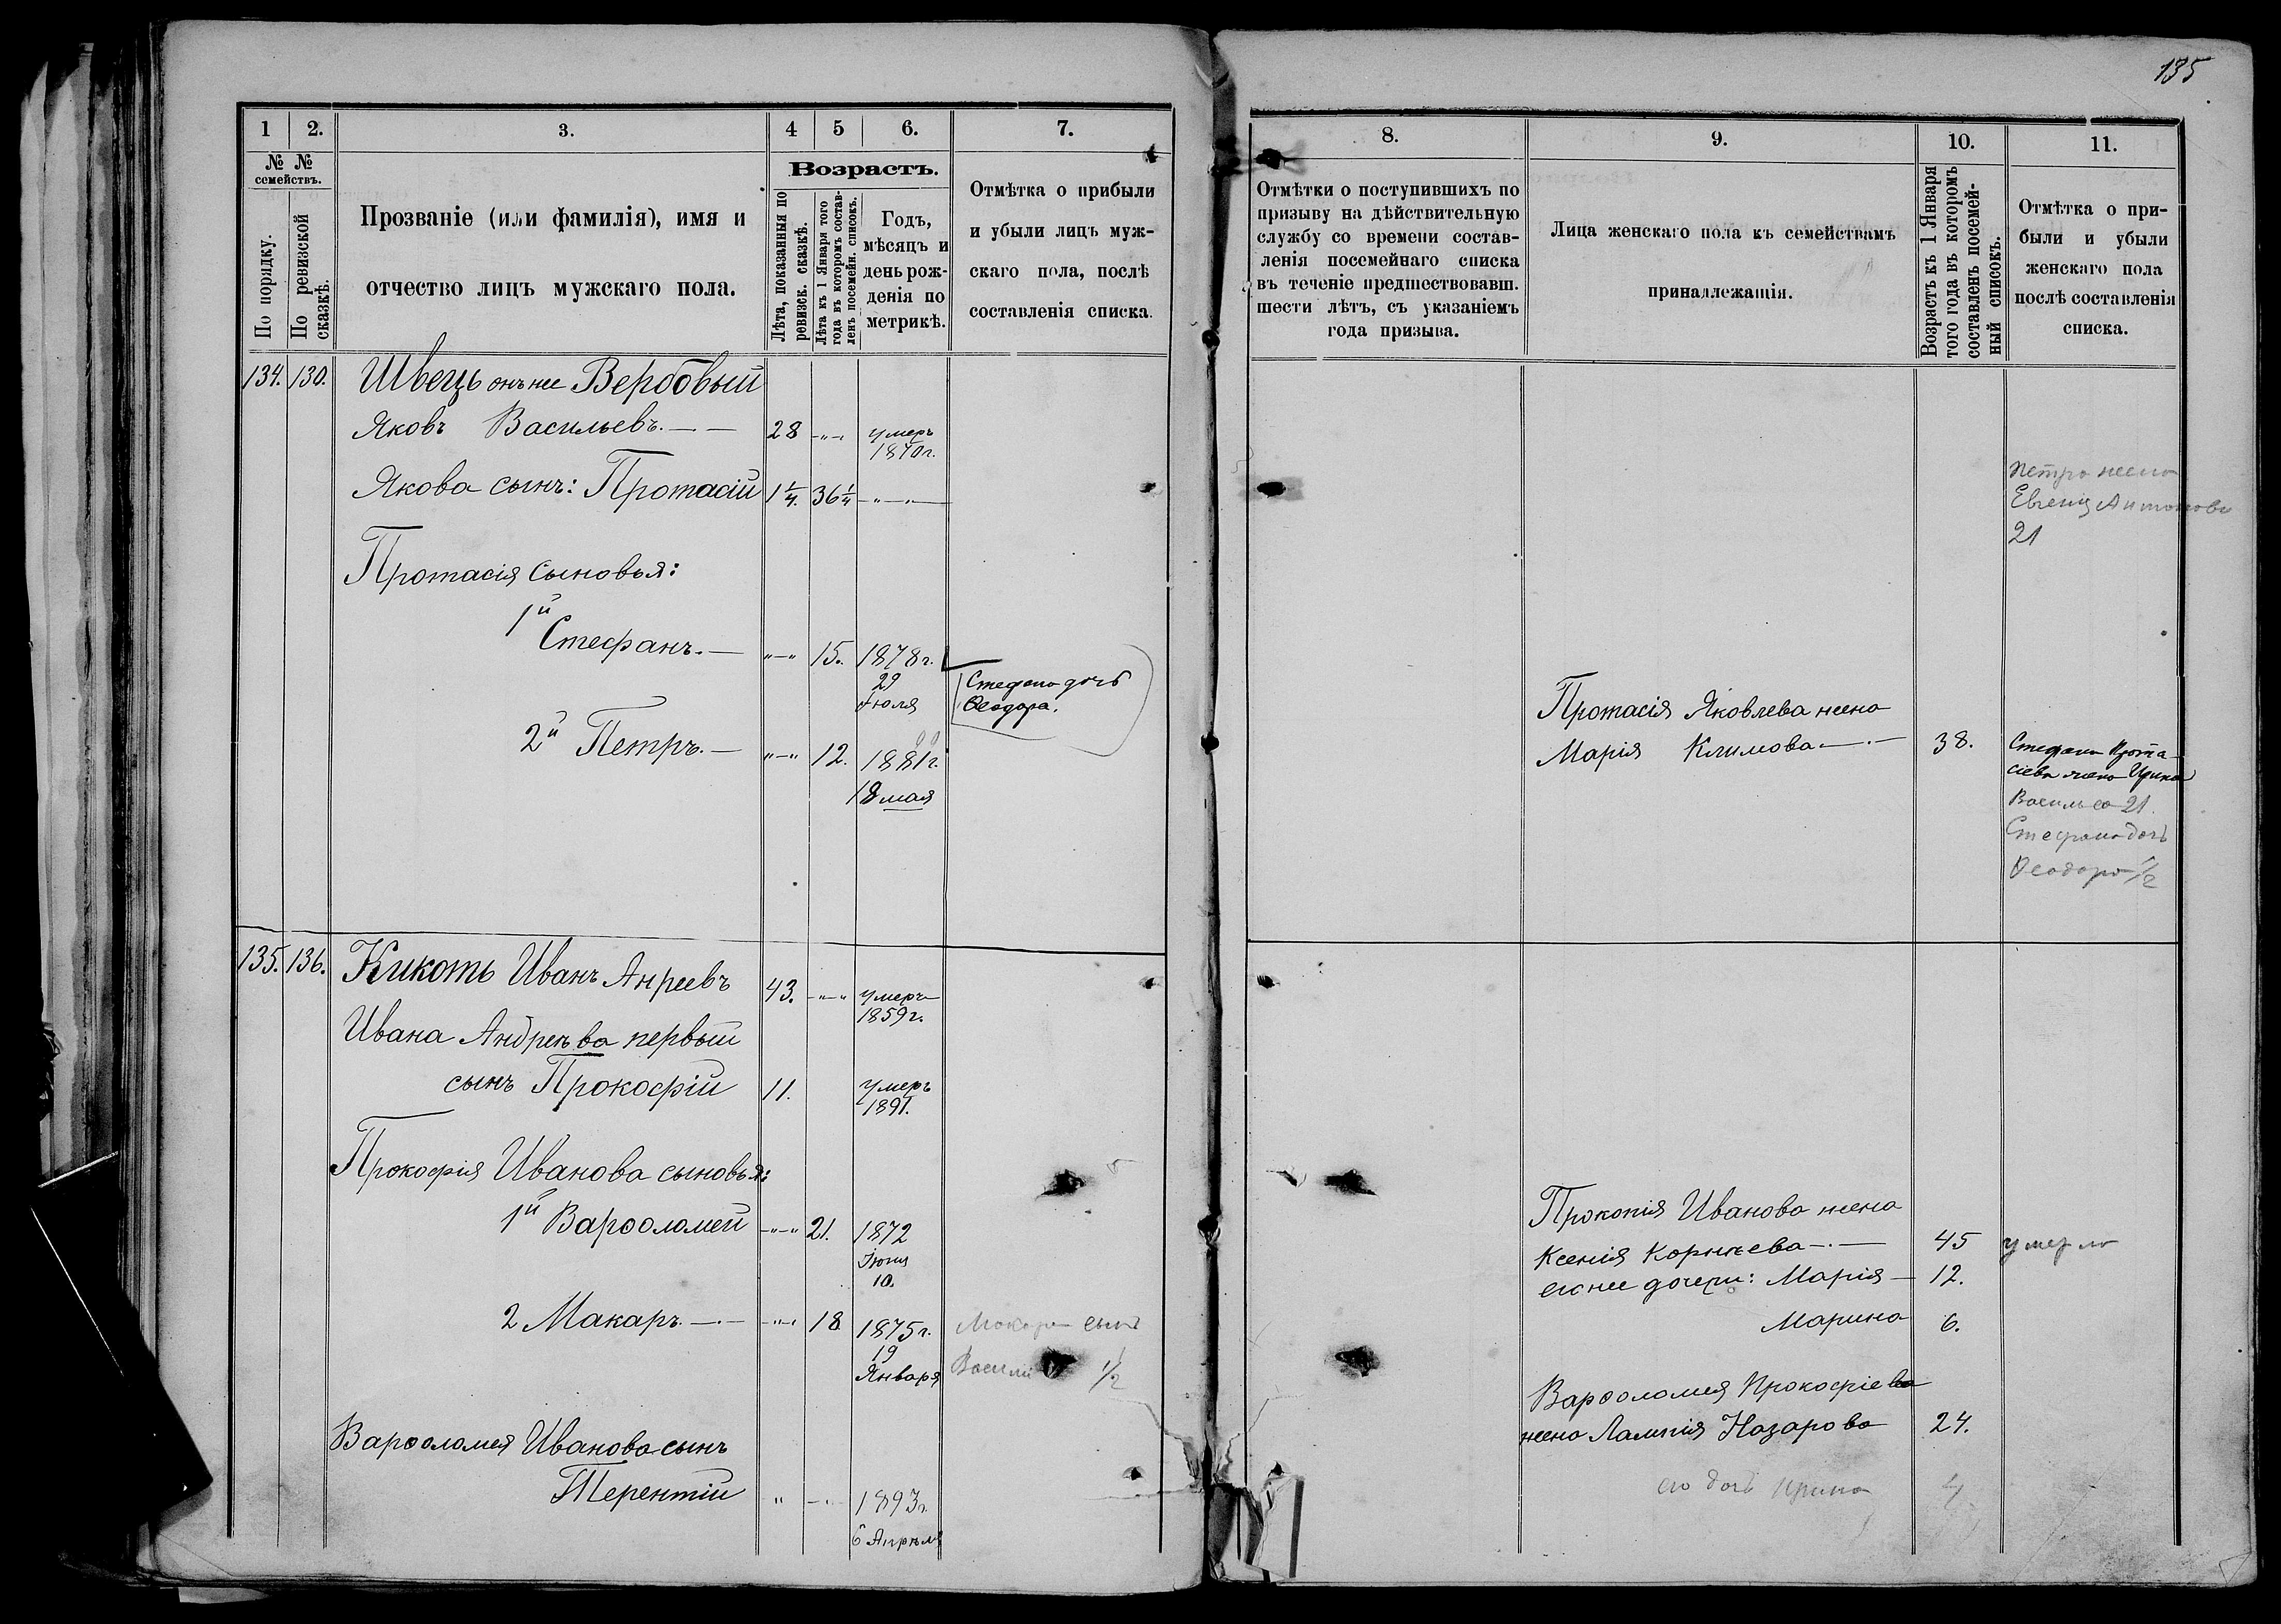 135
1
2.
3.
4
5
6.
7.
№ № семействъ.
По порядку.
По ревизской сказкѣ.
Прозваніе (или фамилія), имя и
отчество лицъ мужскаго пола.
Возрастъ.
Лѣта, показанныя по ревизск. сказкѣ.
Лѣта къ 1 Января того года въ которомъ составленъ посемейн. списокъ.
Годъ,
мѣсяцъ и
день рож-
денія по
метрикѣ.
Отмѣтка о прибыли
и убыли лицъ муж-
скаго пола, послѣ
составленія списка.
134. 130. Швецъ онъ же Вербовый
Яковъ Васильевъ.— — 28 —„— умеръ
1870 г.
Якова сынъ: Протасій 1¼. 36¼ —„—„—
Протасія сыновья:
1й
Стефанъ.— „—„ 15. 1878 г.
29
Іюля
Стефана дочь
Ѳеодора.
2й Петръ.— „—„ 12. 1881 г.
18 мая
135. 136. Кикоть Иванъ Анреевъ 43. —„—„ умеръ
1859 г.
Ивана Андреева первый
сынъ Прокофій 11. умеръ
1891.
Прокофія Иванова сыновья:
1й Варѳоломей —„—„ 21. 1872
Іюня
10.
2 Макаръ.—.— —„— 18 1875 г.
19
Января
Макара сынъ
Васили ½
Варѳоломея Иванова сынъ
Терентій „ —„— 1893 г.
6 Апрѣля
8.
9.
10.
11.
Отмѣтки о поступившихъ по
призыву на дѣйствительную
службу со времени состав-
ленія поссмейнаго списка
въ теченіе предшествовавш.
шести лѣтъ, съ указаніемъ
года призыва.
Лица женскаго пола къ семействамъ
принадлежащія.
Возрастъ къ 1 Января
того года въ которомъ
составленъ посемей-
ный списокъ.
Отмѣтка о при-
были и убыли
женскаго пола
послѣ составленія
списка.
Петра жена
Евгенія Антонова
21
Протасія Яковлева жена
Марія Климова—.— 38.
Стефана Прота-
сіева жена Ирина
Васильева 21.
Стефана дочь
Ѳеодора ½
Прокопія Иванова жена
Ксенія Корнѣева—.— 45 умерла
его же дочери: Марія— 12.
Марина 6.
Варѳоломея Прокофіева
жена Лампія Назарова 24.
его дочь Ирина 4